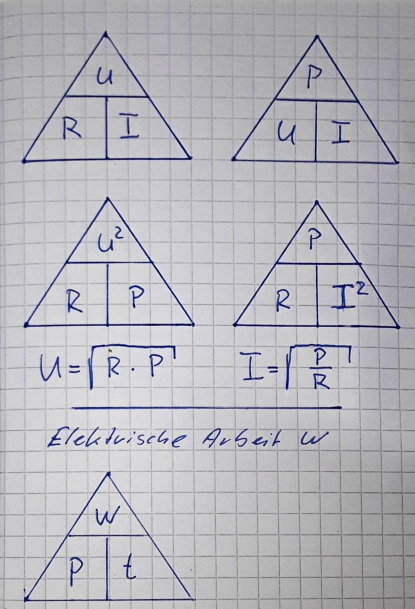 U P
R I U I
U² P
R P R I²
U = √R · P I = √P/R
Elektrische Arbeit W
W
P t